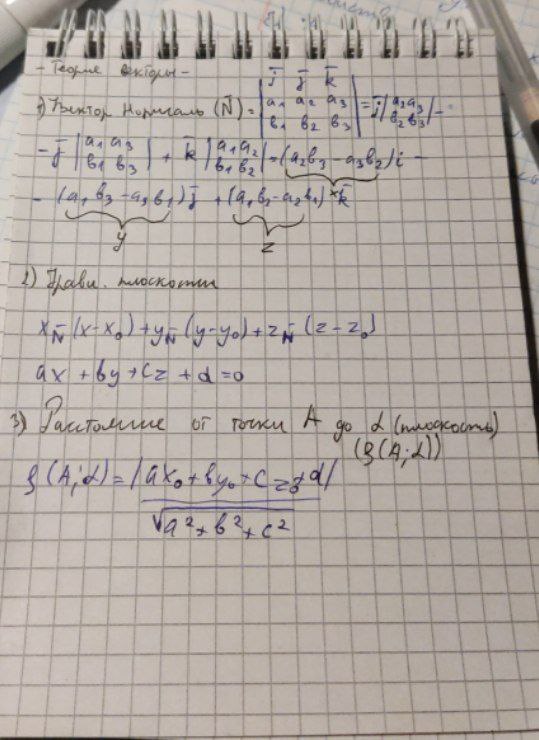 - Теория векторы -
i̅ j̅ k̅
1) Вектор нормаль (N̅) = |a₁ a₂ a₃ / b₁ b₂ b₃| = i̅ |a₂ a₃ / b₂ b₃| -
- j̅ |a₁ a₃ / b₁ b₃| + k̅ |a₁ a₂ / b₁ b₂| = (a₂b₃ - a₃b₂)i -
x
- (a₁b₃ - a₃b₁)j̅ + (a₁b₂ - a₂b₁)k̅
y z
2) Уравн. плоскости
x_N̅(x-x₀)+y_N̅(y-y₀)+z_N̅(z-z₀)
ax + by + cz + d = 0
3) Расстояние от точки A до α (плоскость)
(ρ(A;α))
ρ(A;α) = |ax₀ + by₀ + cz₀ + d|
√a² + b² + c²